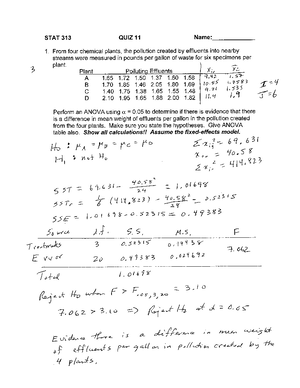 STAT 313 QUIZ 11 Name:
3
1. From four chemical plants, the pollution created by effluents into nearby
streams were measured in pounds per gallon of waste for six specimens per
plant.
Plant Polluting Effluents
A 1.65 1.72 1.50 1.37 1.60
B 1.70 1.85 1.46 2.05 1.80
C 1.40 1.75 1.38 1.65 1.55
D 2.10 1.95 1.65 1.88 2.00
I = 4
J = 6
Perform an ANOVA using α = 0.05 to determine if evidence that there
is a difference in mean weight of effluents per gallon in the pollution created
from the four plants. Make sure you state the hypotheses. Give ANOVA
table also. Show all calculations!! Assume the fixed-effects model.
H₀: μA = μB = μC = μD
H₁: not H₀
SST = 69.631 − 40.58²/24 = 1.01698
SSE = 1.01698 − 0.52315 = 0.49383
Source d.f. S.S. M.S. F
Treatments 3 0.52315 7.062
Error 20 0.49383
Total 1.01698
Reject H₀ when F > F.05,3,20 = 3.10
7.062 > 3.10 => Reject H₀ at α = 0.05
Evidence there is a difference in mean weight
of effluents per gallon in pollution created by the
4 plants.